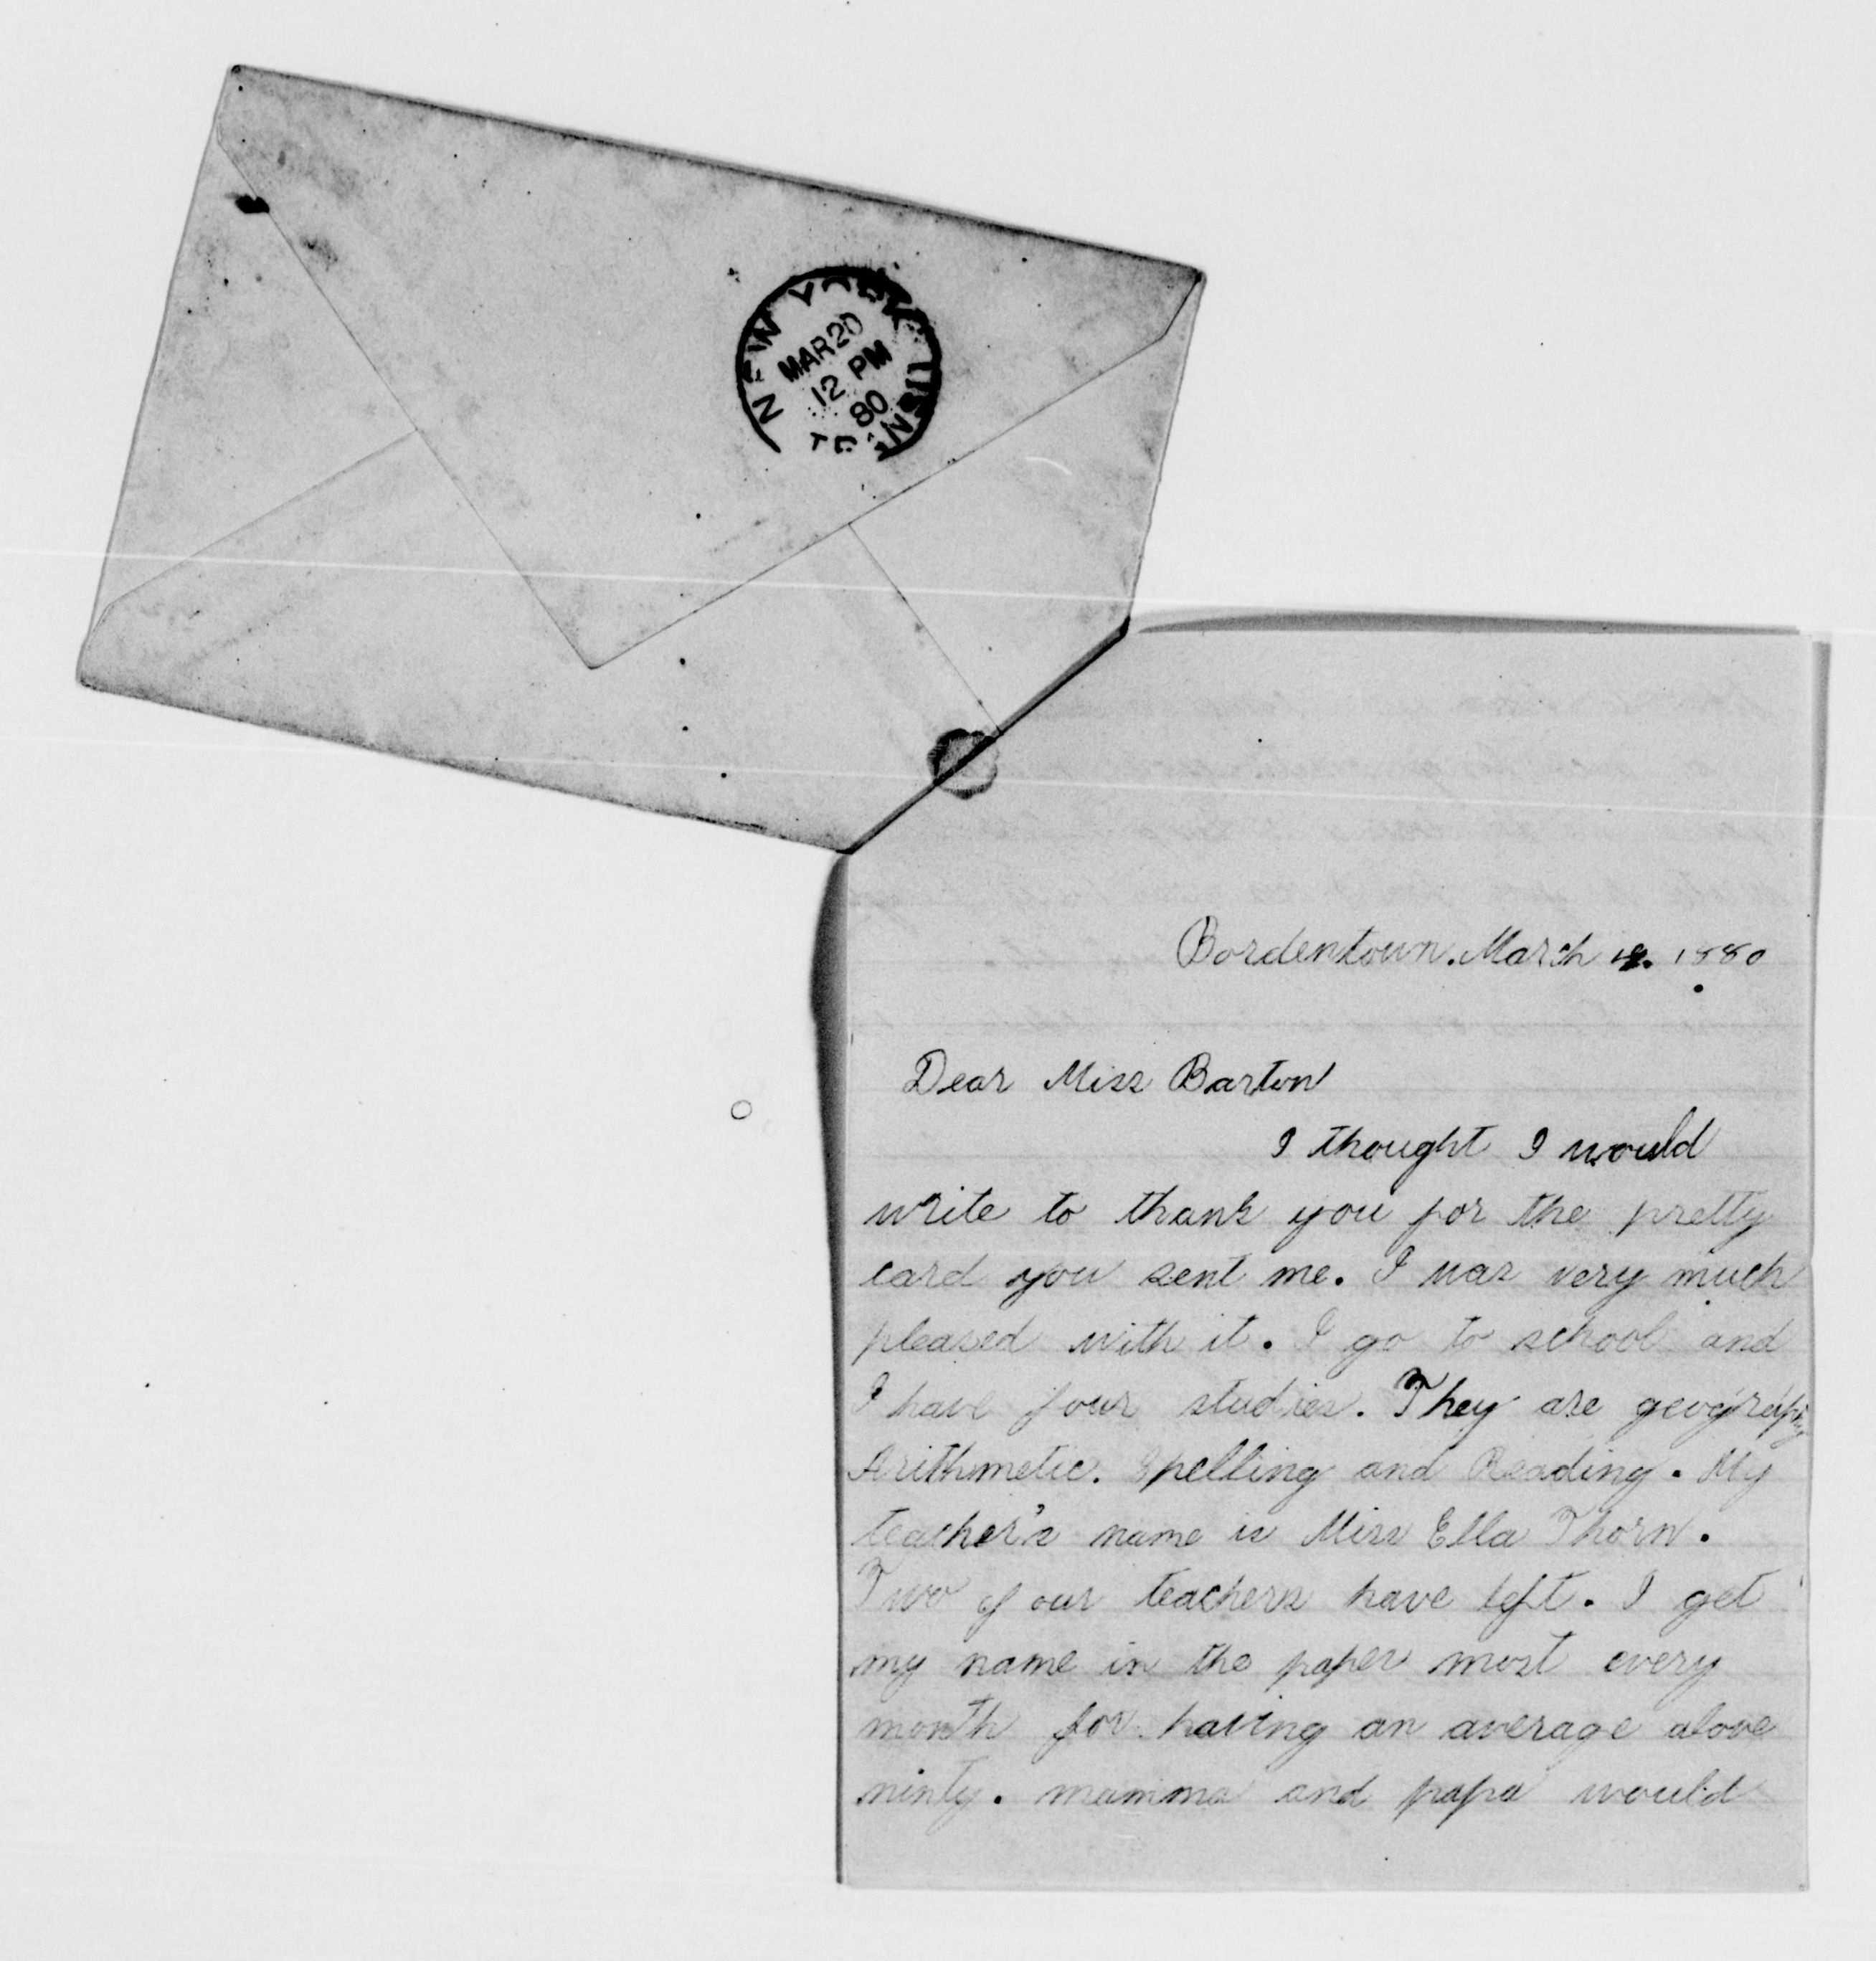 NEW YORK
MAR 20
12 PM
80
Bordentown. March 1880
Dear Miss Barton
I thought I would
write to thank you for the pretty
card you sent me. I was very much
pleased with it. I go to school and
I have four studies. They are geography
Arithmetic. Spelling and Reading. My
teacher's name is Miss Ella Thorn.
Two of our teachers have left. I get
my name in the paper most every
month for having an average above
ninty. mamma and papa would